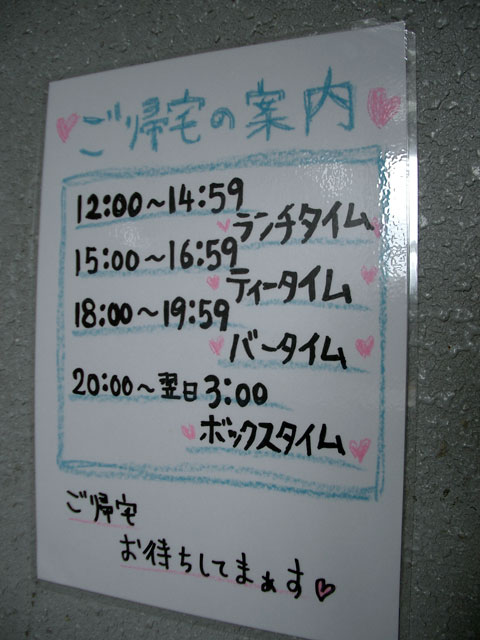 ご帰宅の案内
12:00〜14:59
ランチタイム
15:00〜16:59
ティータイム
18:00〜19:59
バータイム
20:00〜翌日3:00
ボックスタイム
ご帰宅
お待ちしてまぁす♡